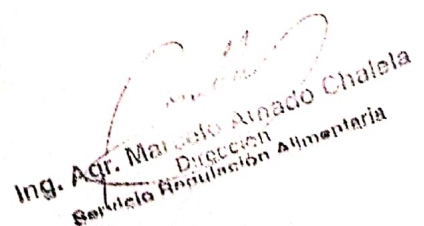 Ing. Agr. Marcelo Amado Chalela
Dirección
Servicio Regulación Alimentaria